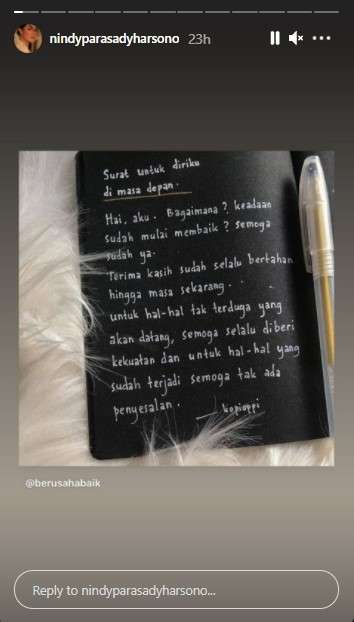 nindyparasadyharsono 23h
Surat untuk diriku
di masa depan.
Hai, aku. Bagaimana? keadaan
sudah mulai membaik? Semoga
sudah ya.
Terima kasih sudah selalu bertahan
hingga masa sekarang.
untuk hal-hal tak terduga yang
akan datang, semoga selalu diberi
kekuatan dan untuk hal-hal yang
sudah terjadi semoga tak ada
penyesalan.
— kopioppi
@berusahabaik
Reply to nindyparasadyharsono...